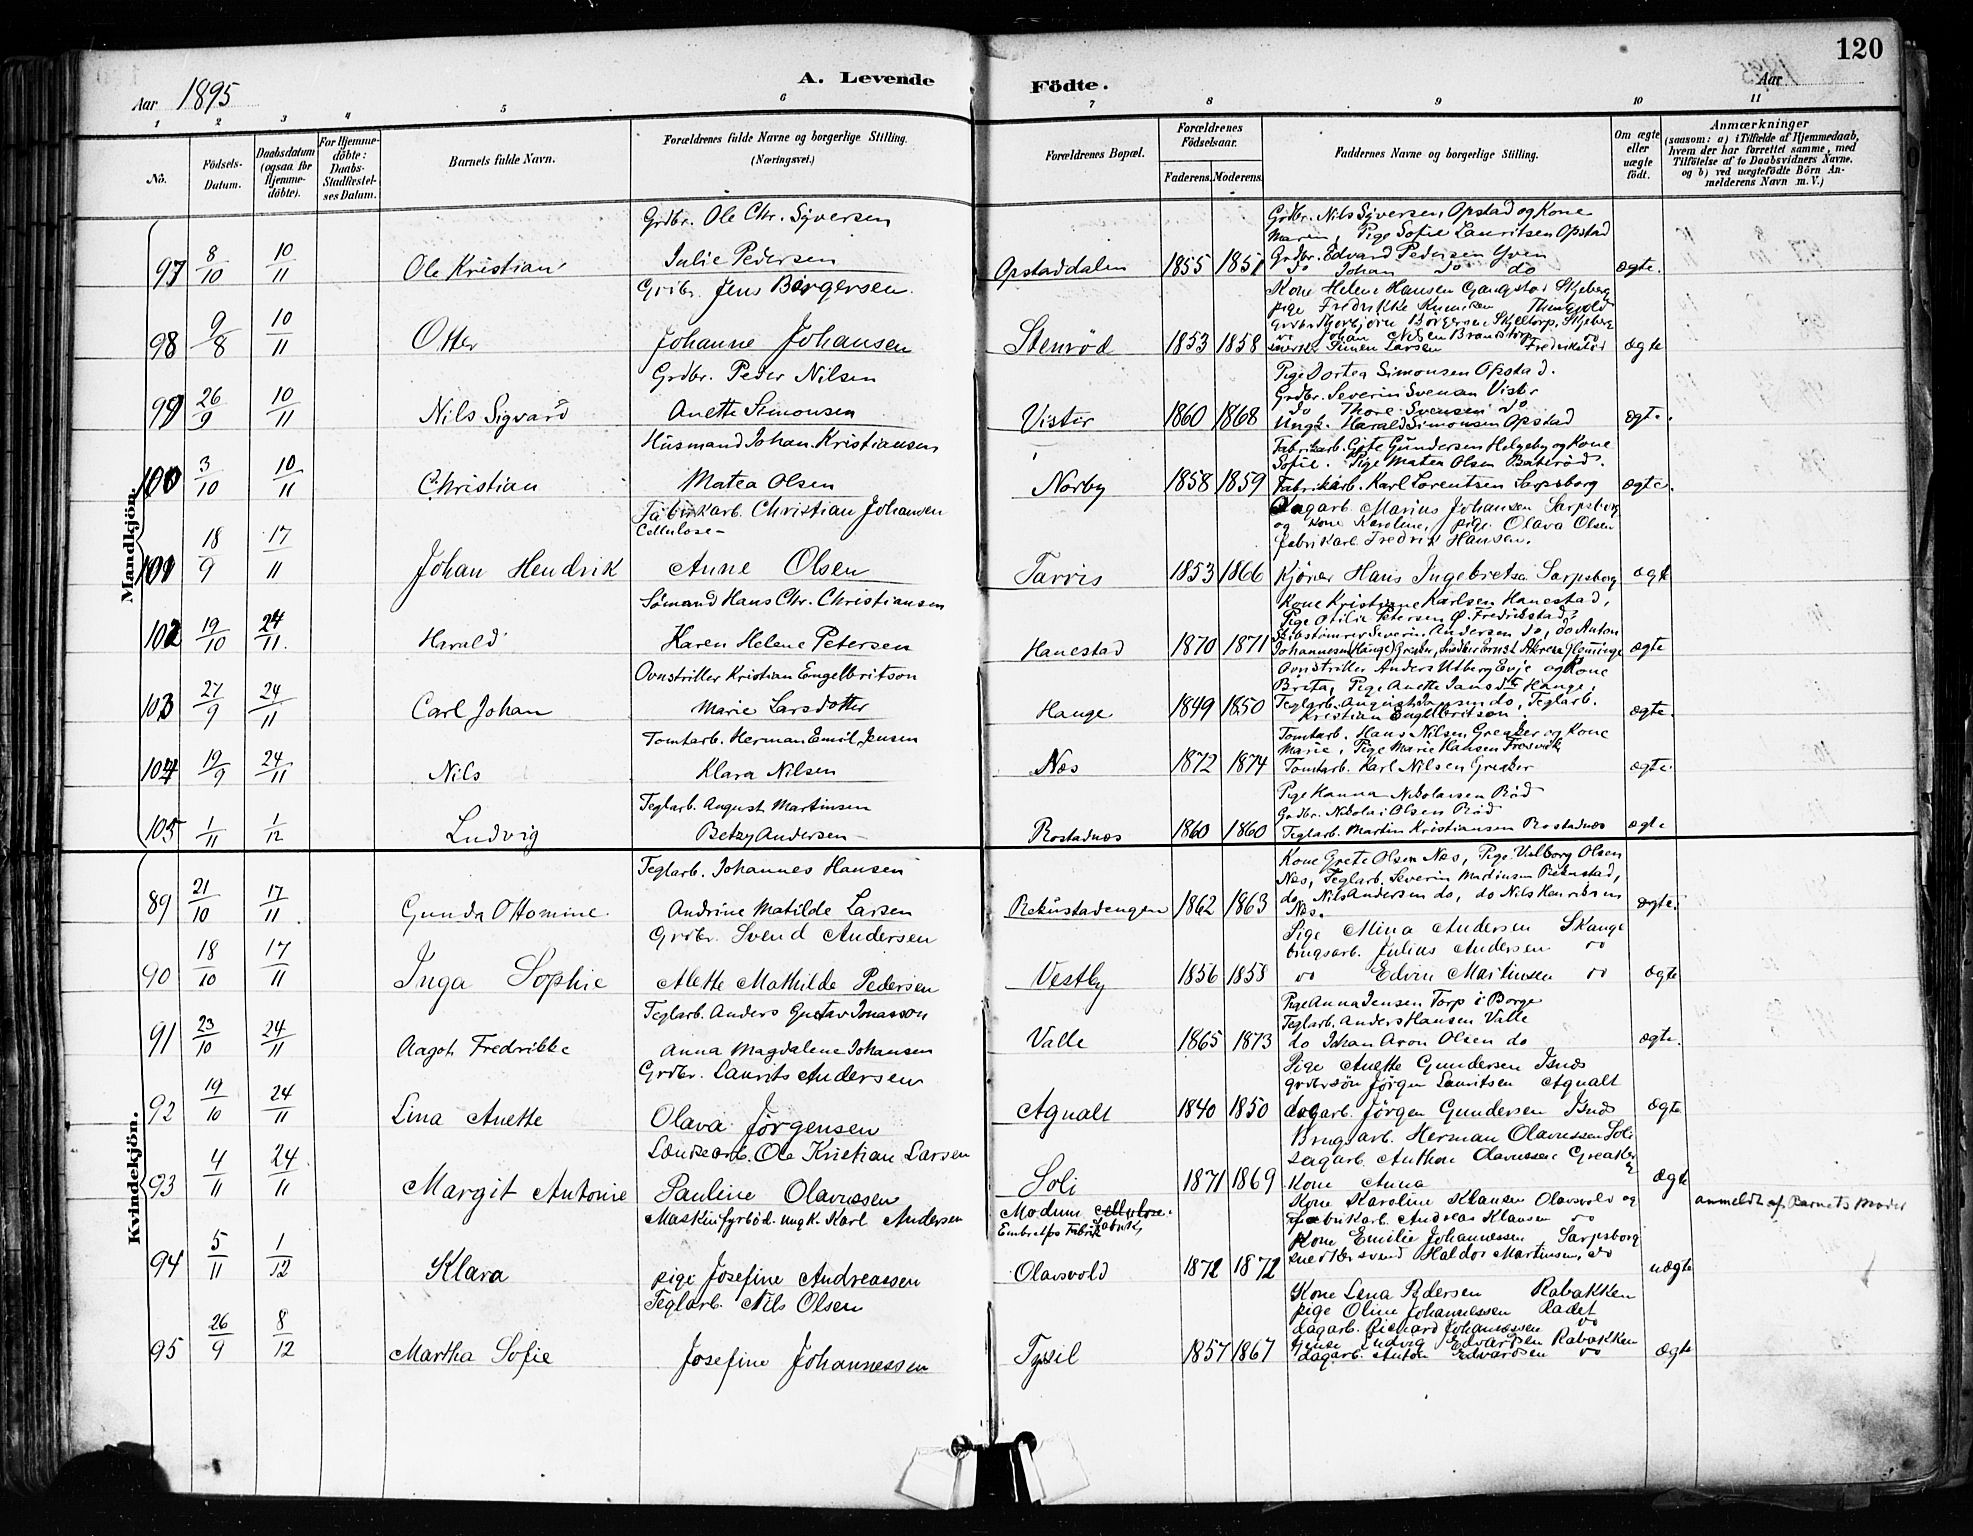 120
A. Levende Födte.
Aar 1895
Aar
1 2 3 4 5 6 7 8 9 10 11
No.
Födsels-Datum.
Daabsdatum (ogsaa for Hjemme-döbte).
For Hjemme-döbte: Daabs-Stadfæstel-ses Datum.
Barnets fulde Navn.
Forældrenes fulde Navne og borgerlige Stilling. (Næringsvei.)
Forældrenes Bopæl.
Forældrenes Födselsaar.
Faderens. Moderens.
Faddernes Navne og borgerlige Stilling.
Om ægte eller uægte födt.
Anmærkninger
(saasom: a) i Tilfælde af Hjemmedaab, hvem der har forrettet samme, med Tilföielse af to Daabsvidners Navne. og b) ved uægtefödte Börn Anmelderens Navn m. V.)
Mandkjön.
Grdbr. Ole Chr. Syversen
Grdbr. Nils Syversen, Opstad og Kone
Maren, Pige Sofie Lauritsen Opstad
97 8/10 10/11 Ole Kristian Julie Pedersen Opstaddalen 1855 1851 Grdbr. Edvard Pedersen Yven ægte.
do Johan do do
Grdbr. Jens Börgersen
Kone Helene Hansen Skjeberg
98 9/8 10/11 Otter Johanne Johansen Stenröd 1853 1858 ægte
Larsen Fredrikstad
Grdbr. Peder Nilsen
Pige Dortea Simonsen Opstad.
Grdbr. Severin Svensen Vister
99 26/9 10/11 Nils Sigvard Anette Simonsen Vister 1860 1868 do Thore Svensen do ægte.
Ungk. Harald Simonsen Opstad
Husmand Johan Kristiansen
Fabrikarb. Gundersen Helgeby og Kone
Sofie. Pige Matea Olsen
100 3/10 10/11 Christian Matea Olsen Norby 1858 1859 Fabrikarb. Karl Lorentsen Sarpsborg ægte.
Fabrikarb. Christian Johansen
Cellulose-
Dagarb. Marius Johansen Sarpsborg
og Kone Karoline, pige Olava Olsen
fabrikarb. Fredrik Hansen.
101 18/9 17/11 Johan Hendrik Anne Olsen Tarris 1853 1866 Kjörer Hans Ingebretsen Sarpsborg ægte
Sömand Hans Chr. Christiansen
Kone Kristiane Karlsen Hanestad,
Pige Otilie Petersen Ø. Fredrikstad,
102 19/10 24/11. Harald Karen Helene Petersen Hanestad 1870 1871 Severin Andersen do, do Anton ægte
Ovnstriller Kristian Engelbritson
Ovnstriller Anders Utberg Evje og Kone
Brita, Pige Anette Jansdt. Hauge,
103 27/9 24/11 Carl Johan Marie Larsdotter Hauge 1849 1850 Teglarb. August do, Teglarb. ægte.
Kristian Engelbritson.
Tomtarb. Herman Emil Jensen
Tomtarb. Hans Nilsen Greaker og Kone
Marie, Pige Marie Hansen
104 19/9 24/11 Nils Klara Nilsen Næs 1872 1874 Tomtarb. Karl Nilsen Greaker ægte.
Teglarb. August Martinsen
Pige Hanna Nikolaisen Röd
Grdbr. Nikolai Olsen Röd
105 1/11 1/12 Ludvig Betzy Andersen Rostadnæs 1860 1860 Teglarb. Martin Kristiansen Rostadnæs ægte
Kvindekjön.
Teglarb. Johannes Hansen
Kone Grete Olsen Næs, Pige Valborg Olsen
Næs, Teglarb. Severin Martinsen Rekustad,
89 21/10 17/11. Gunda Ottomine. Andrine Matilde Larsen Rekustadengen 1862 1863 do Nils Andersen do, do Nils Henriksen ægte.
Næs.
Grdbr. Svend Andersen
Pige Mina Andersen Skange
brugsarb. Julius Andersen do
90 18/10 17/11 Inga Sophie Alette Mathilde Pedersen Vestby 1856 1858 do Edvin Martinsen do ægte
Teglarb. Anders Gustav Jonasson
Pige Anna Jensen Torp i Borge
Teglarb. Anders Hansen Valle
91 23/10 24/11 Aagot Fredrikke Anna Magdalene Johansen Valle 1865 1873 do Johan Aron Olsen do ægte.
Grdbr. Laurits Andersen
Pige Anette Gundersen Isnæs
grdbrsön Jörgen Lauritsen Agnalt
92 19/10 24/11 Lina Anette Olava Jörgensen Agnalt 1840 1850 dagarb. Jörgen Gundersen Isnæs ægte
Landsearb. Ole Kristian Larsen
Brugsarb. Herman Olavessen Soli
dagarb. Anthon Olavessen Greaker
93 4/11 24/11 Margit Antonie Pauline Olavessen Soli 1871 1869 Kone Anna ægte
Maskinfyrbød. ungk. Karl Andersen Modum cellulose.
Embretfos Fabrik
Kone Karoline Klausen Olavsvold og
fabrikarb. Andreas Klausen do
anmeldt af Barnets Moder
Kone Emilie Johannessen Sarpsborg
94 5/11 1/12 Klara pige Josefine Andreassen Olavsvold 1872 1872 snedkersvend Haldor Martinsen do uægte
Teglarb. Nils Olsen
Kone Lena Pedersen Rabakken
pige Oline Johannessen Radet
dagarb. Richard Johannessen do
95 26/9 8/12 Martha Sofie Josefine Johannessen 1857 1867 Ludvig Edvardsen Rabakken ægte
dagarb. Anton Edvardsen do